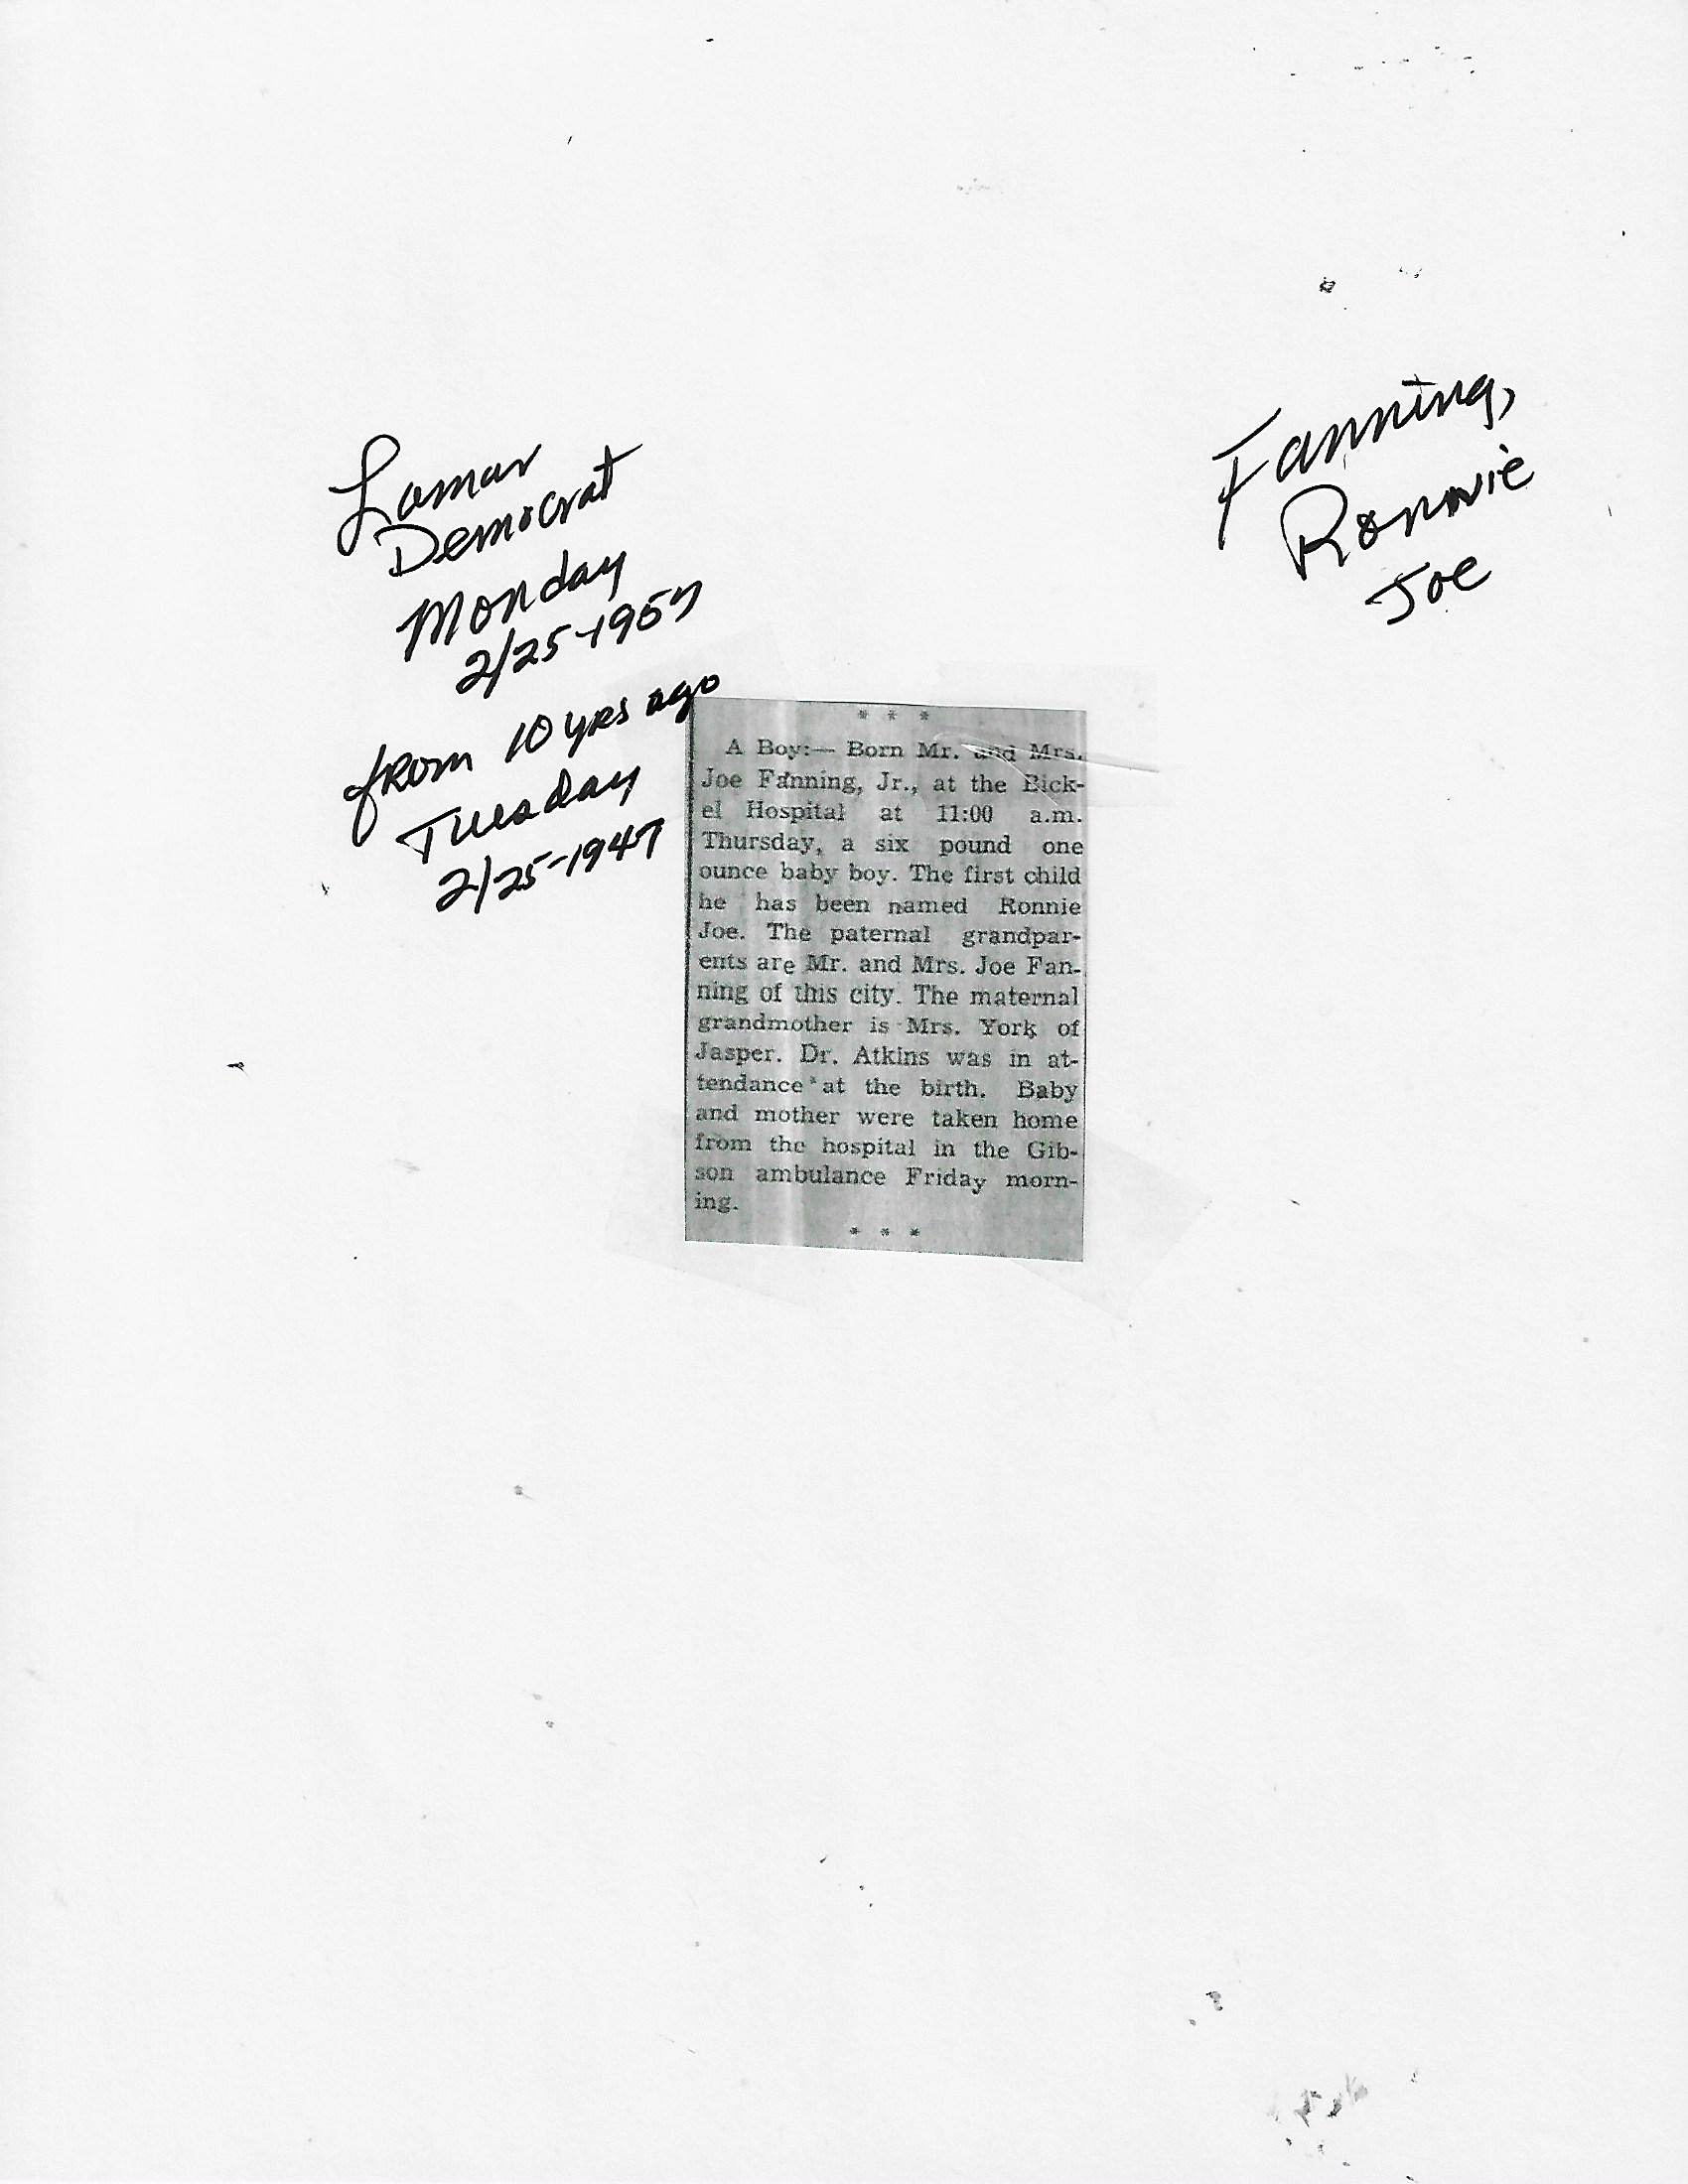 Lamar
Democrat
Monday
2/25-1957
from 10 yrs ago
Tuesday
2/25-1947
Fanning,
Ronnie
Joe
* * *
A Boy:— Born Mr. and Mrs.
Joe Fanning, Jr., at the Bick-
el Hospital at 11:00 a.m.
Thursday, a six pound one
ounce baby boy. The first child
he has been named Ronnie
Joe. The paternal grandpar-
ents are Mr. and Mrs. Joe Fan-
ning of this city. The maternal
grandmother is Mrs. York of
Jasper. Dr. Atkins was in at-
tendance at the birth. Baby
and mother were taken home
from the hospital in the Gib-
son ambulance Friday morn-
ing.
* * *